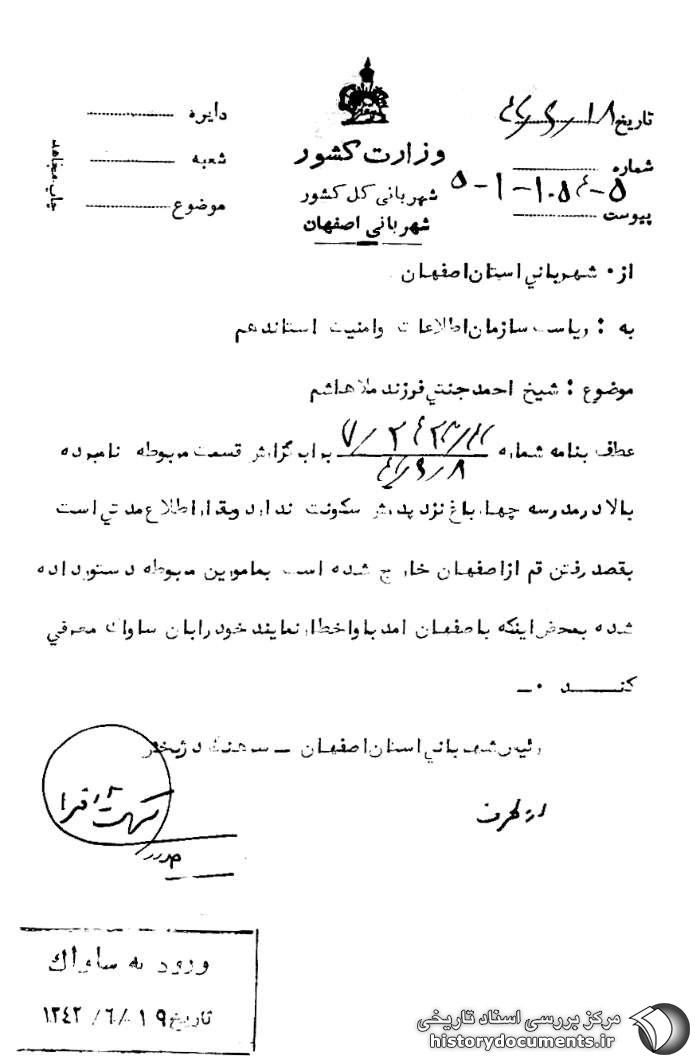 تاریخ
شماره
پیوست
۵-۱-۱۰۵۴-۵
وزارت کشور
شهربانی کل کشور
شهربانی اصفهان
دایره
شعبه
موضوع
چاپ مجاهد
از ۰ شهرباني استان اصفهان
به : ریاست سازمان اطلاعات وامنیت استاندهم
موضوع : شیخ احمدجنتي فرزندملاهاشم
عطف بنامه شماره برابرگزارش قسمت مربوطه نامبرده
بالادرمدرسه چهارباغ نزدپدرش سکونت نداردوبقراراطلاع مدتي است
بقصدرفتن قم ازاصفهان خارج شده است بمامورین مربوطه دستورداده
شده بمحض اینکه باصفهان امدباواخطارنمایندخودرابان ساواك معرفي
کنــــد ۰ــ
رئیس شهرباني استان اصفهان ــ سرهنگ
از طرف
ورود به ساواك
تاریخ ۱۹ /۶/ ۱۳۴۲
مرکز بررسی اسناد تاریخی
historydocuments.ir